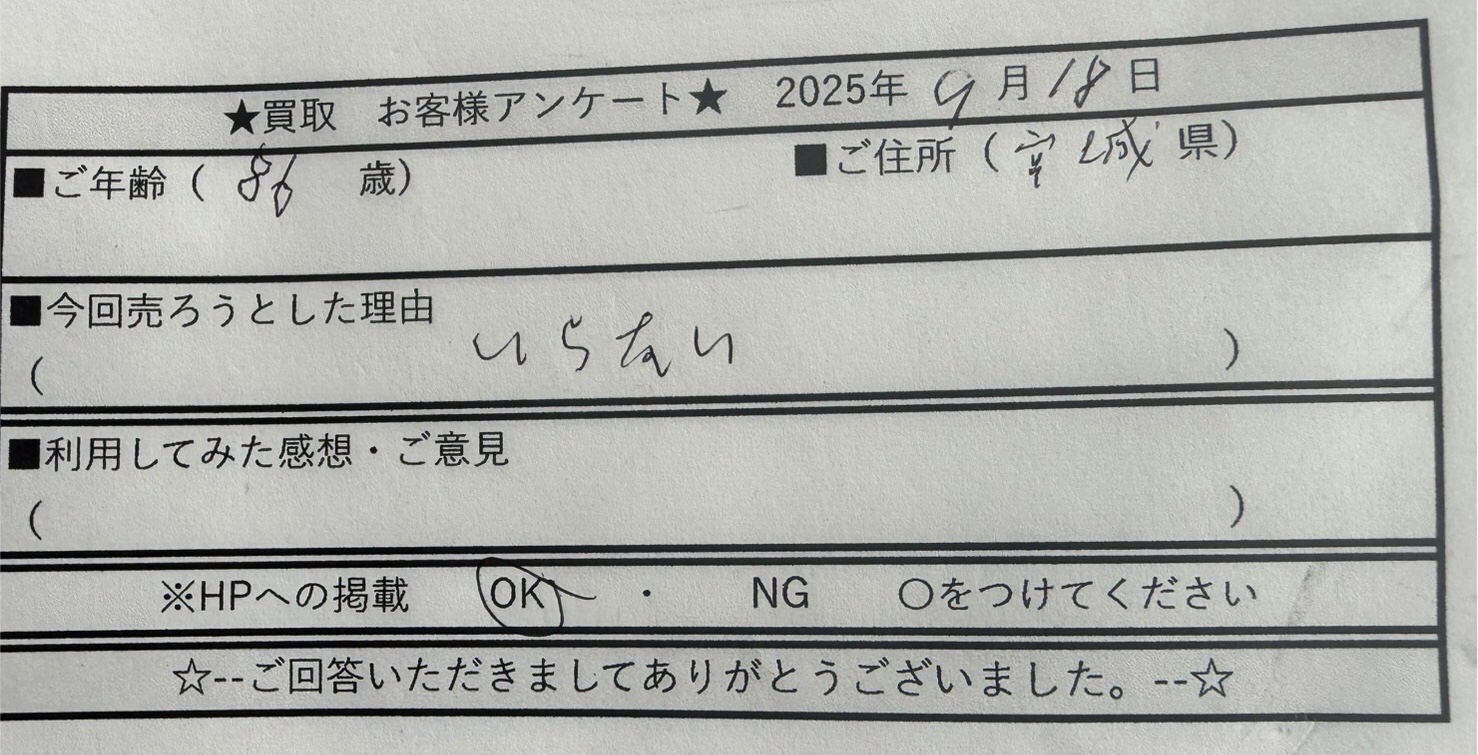 ★買取　お客様アンケート★　2025年 9月18日
■ご年齢（ 86 歳）　■ご住所（宮城県）
■今回売ろうとした理由
（ いらない ）
■利用してみた感想・ご意見
（ ）
※HPへの掲載　OK　・　NG　〇をつけてください
☆--ご回答いただきましてありがとうございました。--☆